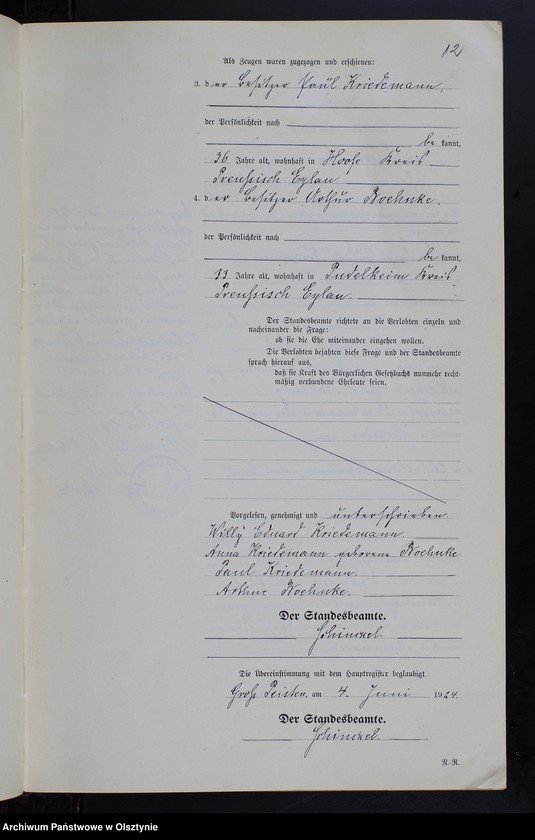 12
Als Zeugen waren zugezogen und erschienen:
3. der Besitzer Paul Kriedemann,
der Persönlichkeit nach
be kannt,
36 Jahre alt, wohnhaft in Hoofe Kreis
Preußisch Eylau
4. der Besitzer Arthur Boehnke,
der Persönlichkeit nach
be kannt,
33 Jahre alt, wohnhaft in Pudelkeim Kreis
Preussisch Eylau.
Der Standesbeamte richtete an die Verlobten einzeln und
nacheinander die Frage:
ob sie die Ehe miteinander eingehen wollen.
Die Verlobten bejahten diese Frage und der Standesbeamte
sprach hierauf aus,
daß sie kraft des Bürgerlichen Gesetzbuchs nunmehr recht-
mäßig verbundene Eheleute seien.
Vorgelesen, genehmigt und unterschrieben
Willy Eduard Kriedemann
Anna Kriedemann geborene Boehnke
Paul Kriedemann.
Arthur Boehnke.
Der Standesbeamte.
Schinzel
Die Übereinstimmung mit dem Hauptregister beglaubigt
Groß Peisten, am 4. Juni 1924.
Der Standesbeamte.
Schinzel
N.-R.
Archiwum Państwowe w Olsztynie